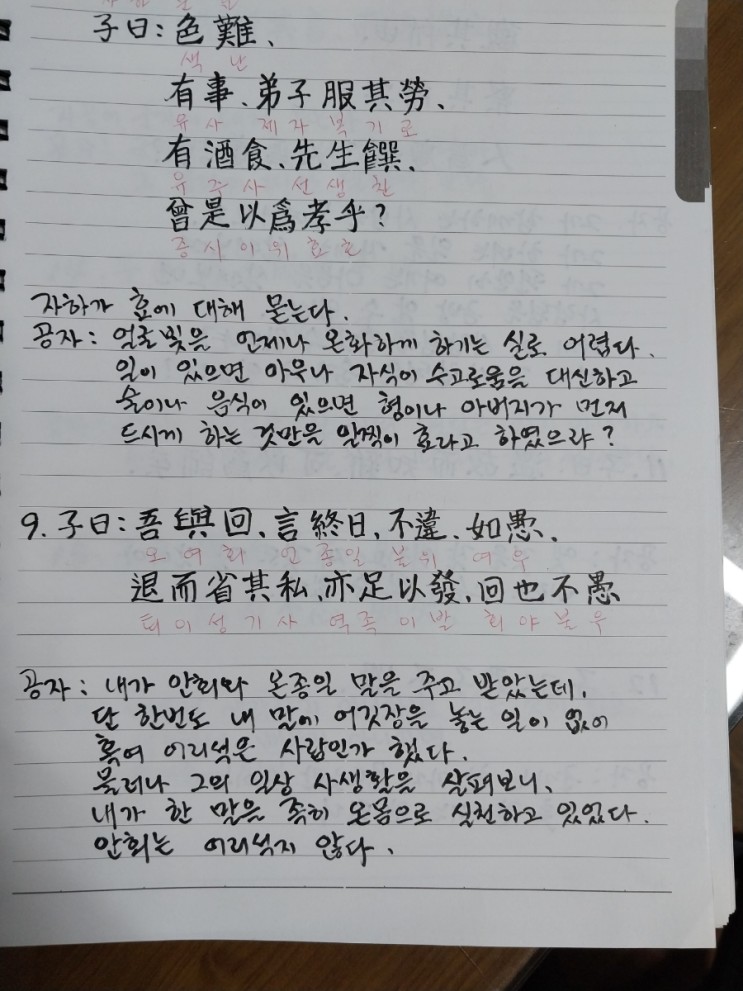 子曰: 色難、
색 난
有事、弟子服其勞、
유 사 제 자 복 기 로
有酒食、先生饌、
유 주 사 선 생 찬
曾是以爲孝乎?
증 시 이 위 효 호
자하가 효에 대해 묻는다.
공자: 얼굴빛을 언제나 온화하게 하기는 실로 어렵다.
일이 있으면 아우나 자식이 수고로움을 대신하고
술이나 음식이 있으면 형이나 아버지가 먼저
드시게 하는 것만을 일찍이 효라고 하였으랴?
9. 子曰: 吾與回、言終日、不違、如愚、
오 여 회 언 종 일 불 위 여 우
退而省其私、亦足以發、回也不愚
퇴 이 성 기 사 역 족 이 발 회 야 불 우
공자: 내가 안회와 온종일 말을 주고 받았는데,
단 한번도 내 말에 어깃장을 놓는 일이 없어
혹여 어리석은 사람인가 했다.
물러나 그의 일상 사생활을 살펴보니,
내가 한 말을 족히 온몸으로 실천하고 있었다.
안회는 어리석지 않다.